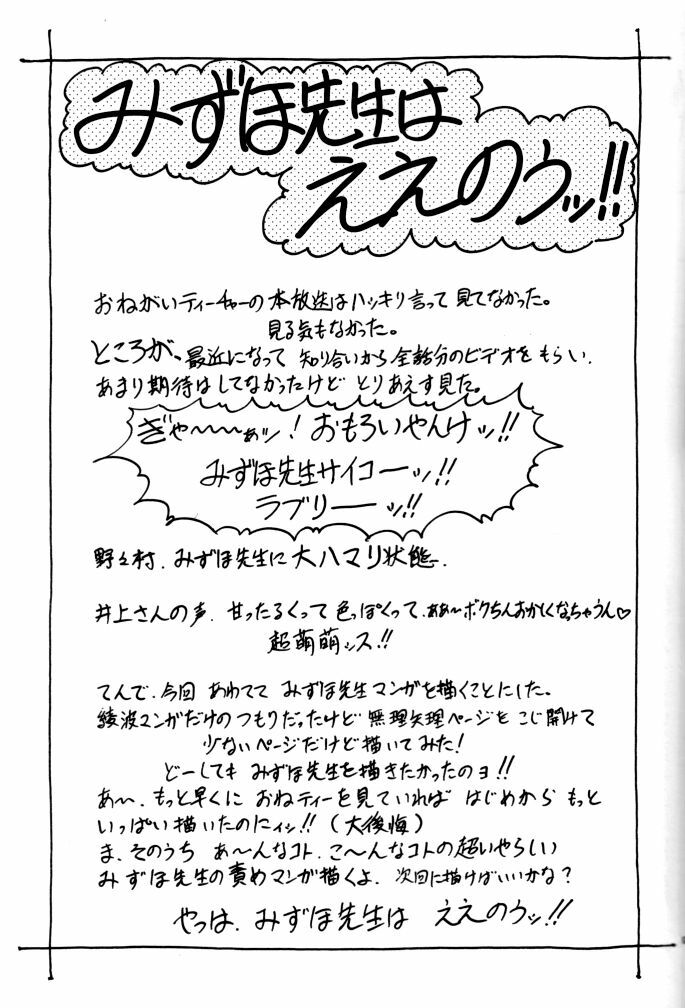 みずほ先生は
ええのうッ!!
おねがいティーチャーの本放送はハッキリ言って見てなかった。
見る気もなかった。
ところが、最近になって 知り合いから全話分のビデオをもらい、
あまり期待はしてなかったけど とりあえす見た。
ぎゃ〜〜〜ぁッ! おもろいやんけッ!!
みずほ先生サイコーーッ!!
ラブリーーッ!!
野々村、みずほ先生に大ハマリ状態。
井上さんの声、甘ったるくって色っぽくって、ああ〜ボクちんおかしくなっちゃうん♡
超萌萌ッス!!
てんで、今回 あわてて みずほ先生マンガを描くことにした。
綾波マンガだけのつもりだったけど 無理矢理ページを こじ開けて
少ないページだけど描いてみた!
どーしても みずほ先生を描きたかったのョ!!
あ〜、もっと早くに おねティーを見ていれば はじめから もっと
いっぱい描いたのにィッ!! (大後悔)
ま、そのうち あ〜んなコト、こ〜んなコトの超いやらしい
みずほ先生の責めマンガ描くよ、次回に描けばいいかな?
やっは、みずほ先生は ええのウッ!!